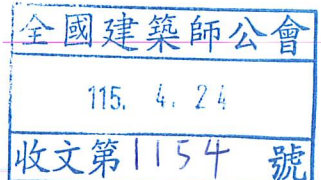 全國建築師公會
115. 4. 24
收文第1154號